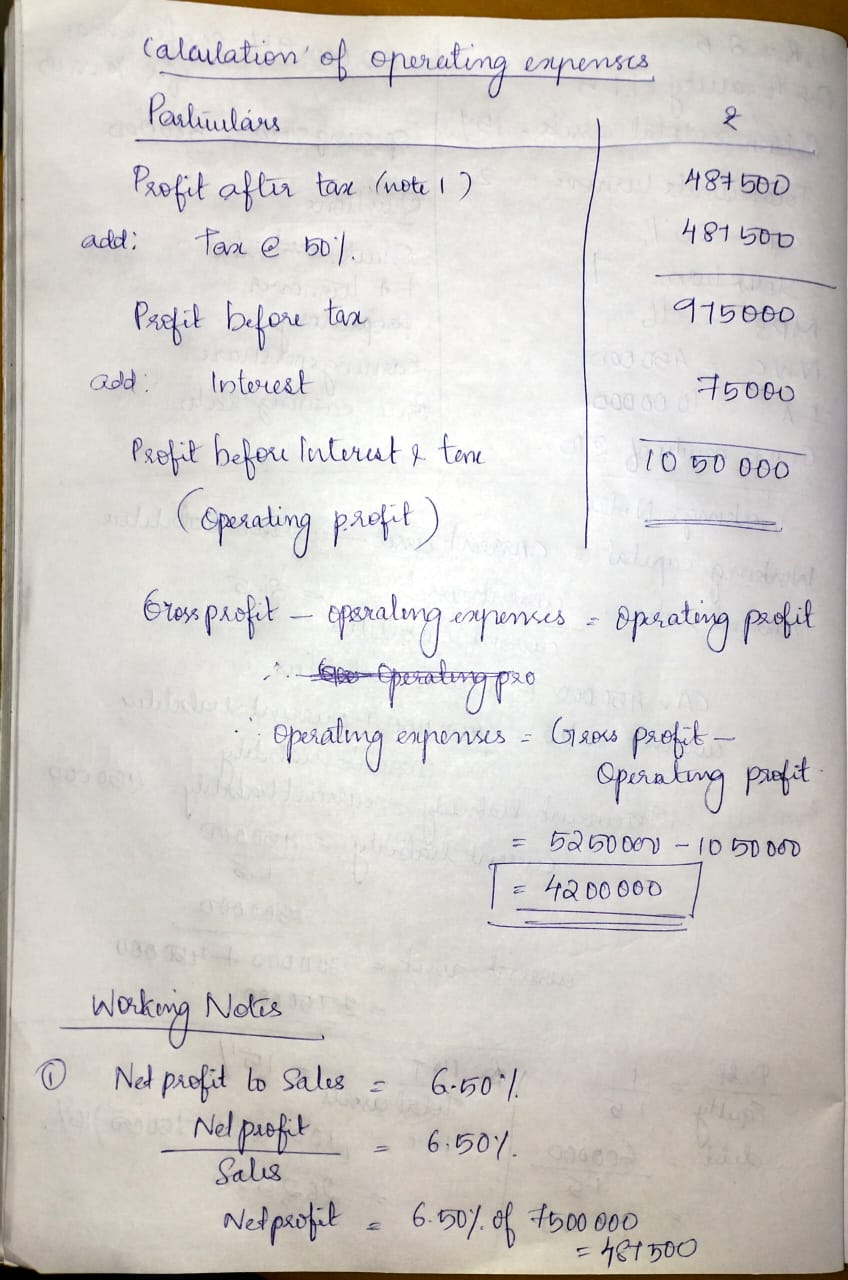 Calculation of operating expenses
Particulars ₹
Profit after tax (note 1) 487500
add: Tax @ 50%. 487500
Profit before tax 975000
add: Interest 75000
Profit before Interest & tax 1050000
(Operating profit)
Gross profit - operating expenses = operating profit
∴ Operating pro
∴ Operating expenses = Gross profit -
Operating profit
= 5250000 - 1050000
= 4200000
Working Notes
① Net profit to Sales = 6.50%.
Net profit
= 6.50%.
Sales
Net profit = 6.50%. of 7500000
= 487500